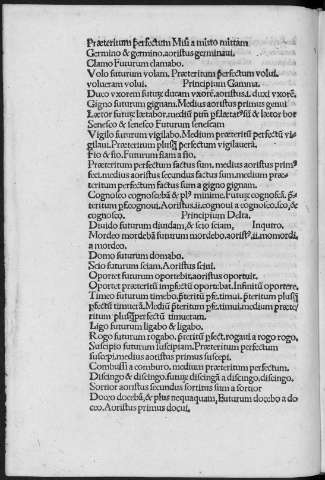 Præteritum perfectum Misi a misto mittam
Germino & germino.aoristus germinaui.
Clamo Futurum clamabo.
Volo futurum volam. Præteritum perfectum volui.
volueram volui. Principium Gamma.
Duco vxorem futuꝝ ducam vxorē.aoristus.i. duxi vxorē.
Gigno futurum gignam. Medius aoristus primus genui
Lætor futuꝝ lætabor.
Senesco & senesco Futurum senescam
Vigilo futurum vigilabo. Medium præteritū perfectū vi
gilaui. Præteritum plusq̃ perfectum vigilauerā.
Fio & fio. Futurum fiam a fio.
Præteritum perfectum factus sum. medius aoristus primꝰ
feci. medius aoristus secundus factus sum. medium præ
teritum perfectum factus sum a gigno gignam.
Cognosco cognoscebā & plꝰ minime. Futuꝝ cognoscā. p̃
teritum pfe. cognoui. Aoristus.ii. cognoui a cognosco.sco, &
cognosco. Principium Delta.
Diuido futurum diuidam, & scio sciam, Inquiro.
Mordeo mordebā futurum mordebo. aoristꝰ.ii. momordi,
a mordeo.
Domo futurum domabo.
Scio futurum sciam. Aoristus sciui.
Oportet futurum oportebit. aoristus oportuit.
Oportet præteritū impfectū oportebat. Infinitū oportere.
Timeo futurum timebo. p̃teritū pfe. timui. p̃teritum plusq̃
pfectū timuerā. Mediū p̃teritum pfe. timui. medium præte/
ritum plusq̃perfectū timueram.
Ligo futurum ligabo & ligabo.
Rogo futurum rogabo. p̃teritū pfect. rogaui a rogo rogo,
Suscipio futurum suscipiam. Præteritum perfectum
suscepi. medius aoristus primus suscepi.
Combussi a comburo. medium præteritum perfectum.
Discingo & discingo. futuꝝ discingā a discingo. discingo,
Sortior aoristus secundus sortitus sum a sortior
Doceo docebā, & plus nequaquam, Futurum docebo a do
ceo. Aoristus primus docui.